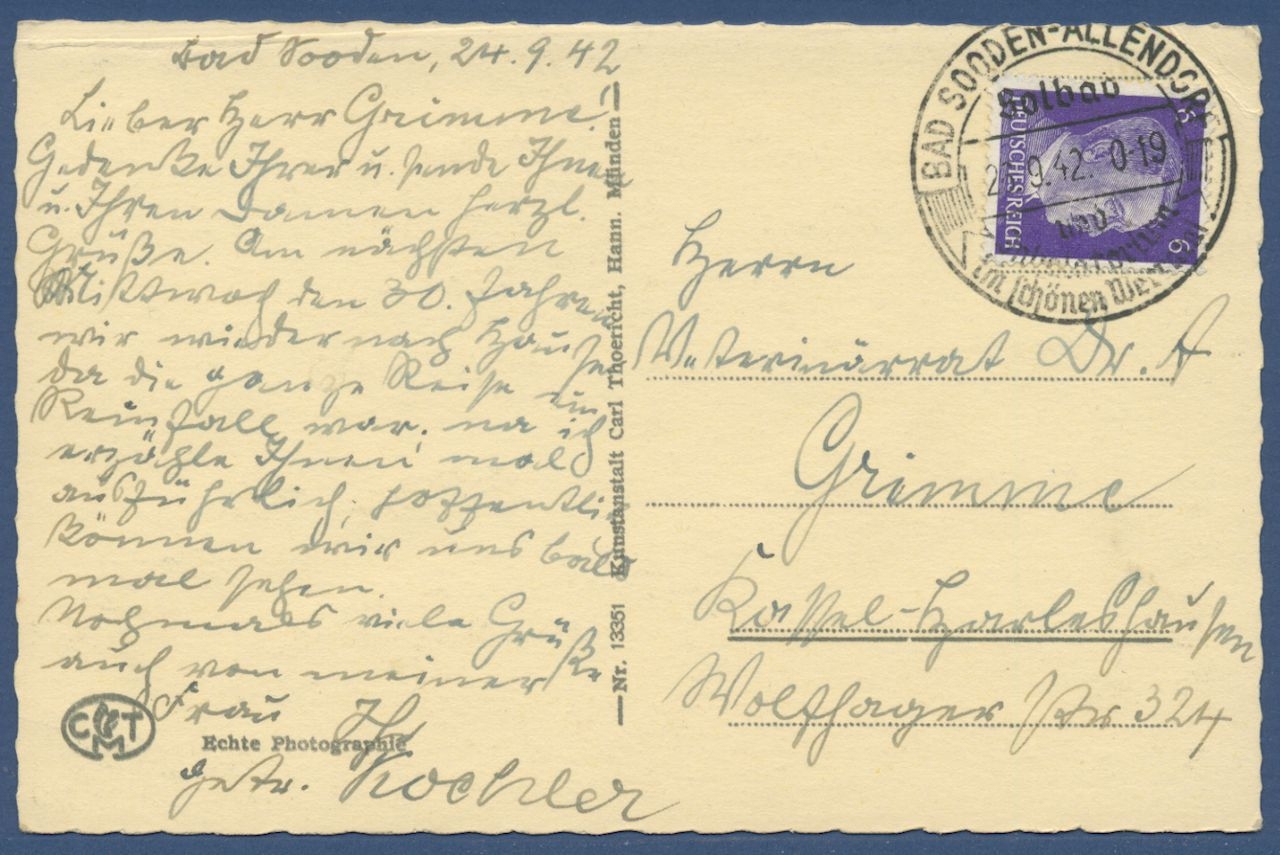 Bad Sooden, 24.9.42
Lieber Herr Grimme!
Gedenke Ihrer u. sende Ihnen
u. Ihren Damen herzl.
Grüße. Am nächsten
Mittwoch den 30. fahren
wir wieder nach Hause
da die ganze Reise ein
Reinfall war, na ich
erzähle Ihnen mal
ausführlich, hoffentlich
können wir uns bald
mal sehen.
Nochmals viele Grüße
auch von meiner
Frau Ihr
getr. Kochler
CTM
Echte Photographie
Nr. 13351 Kunstanstalt Carl Thoericht, Hann. Münden
BAD SOODEN-ALLENDORF
Solbad
9.42. 0-19
und
im schönen
DEUTSCHES REICH
6
6
Herrn
Veterinärrat Dr. A
Grimme
Kassel-Harleshausen
Wolfhager Str 324